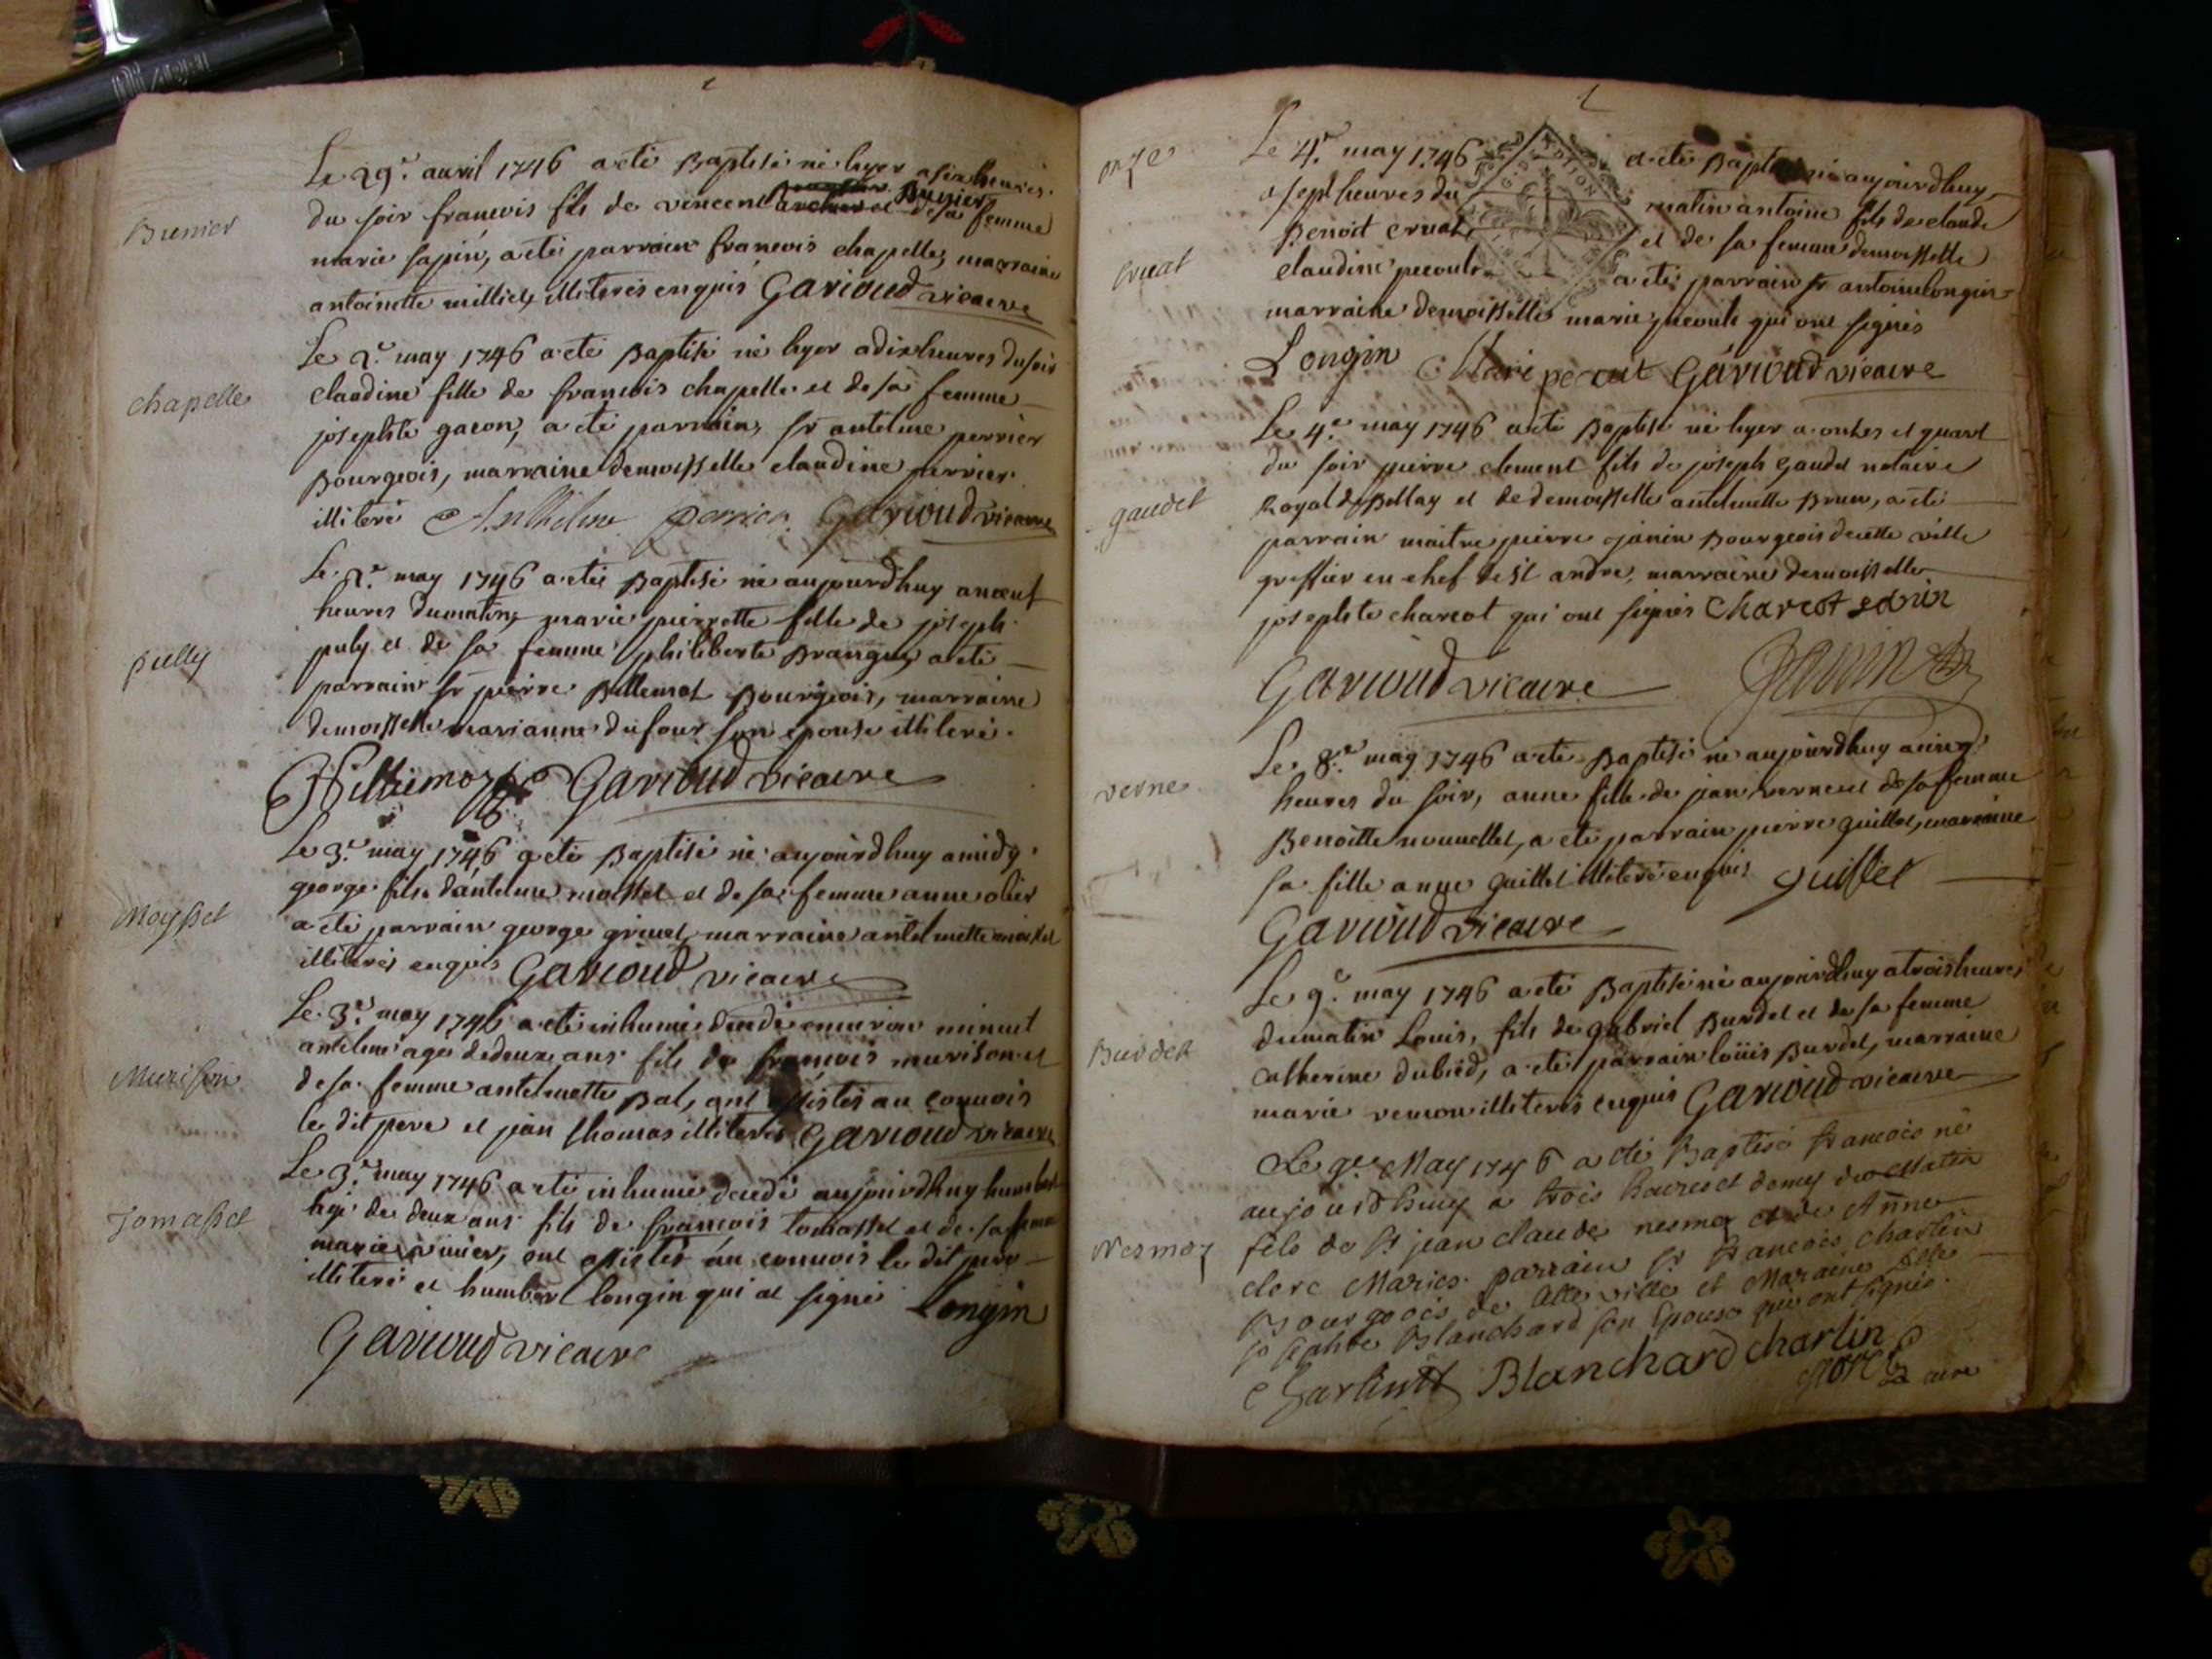 Le 29.e auril 1746 a eté Baptisé né hyer a six heures
Bunier
du soir francois fils de vincent Bunier et de sa femme
marie sapin, a eté parrain francois chapelle, marraine
antoinette milliet, illiterés enquis Garioud vicaire
Le 2.e may 1746 a eté Baptisé né hyer a dix heures du soir
chapelle
claudine fille de francois chapelle et de sa femme
josephte gacon, a eté parrain, sr antelme perrier
Bourgeois, marraine demoisselle claudine perrier
illiteré Anthelme perrier Garioud vicaire
Le 2.e may 1746 a eté Baptisé né aujourdhuy a neuf
heures du matin, marie pierrette fille de joseph
pully
puly et de sa femme philiberte Brangue, a eté
parrain sr pierre Billemot Bourgeois, marraine
demoisselle marianne dufour son epouse illiteré.
Garioud vicaire
Le 3.e may 1746 a eté Baptisé né aujourdhuy a midy
george fils d'antelme moissel et de sa femme anne
Moyssel
a eté parrain george grinet, marraine antelmette moissel
illiterés enquis Garioud vicaire
Le 3.e may 1746 a eté inhumé decedé enuiron minuit
antelme agé de deux ans fils de francois murison et
Murison
de sa femme antelmette Bal, ont assistés au conuois
le dit pere et jean thomas illiterés Garioud vicaire
Le 3.e may 1746 a eté inhumé decedé aujourdhuy humbert
Tomassel
agé de deux ans fils de francois tomassel et de sa femme
marie, ont assistés au conuois le dit pere
illiteré et humbert longin qui at signé Longin
Garioud vicaire
onze
Le 4.e may 1746 a eté Baptisé né aujourdhuy
a sept heures du matin antoine fils de claude
cruat
Benoit cruat et de sa femme demoisselle
claudine pecoult a eté parrain sr antoine longin
marraine demoisselle marie pecoult qui ont signés
Longin Marie pecout Garioud vicaire
Le 4.e may 1746 a eté Baptisé né hyer a onhes et quart
du soir pierre clement fils de joseph gaudet notaire
gaudet
Royal de Bellay et de demoisselle antelmette Brun, a eté
parrain maitre pierre janin Bourgeois de cette ville
greffier en chef de st andre, marraine demoisselle
josephte charcot qui ont signés Charcot
Garioud vicaire Janin
Le 8.e may 1746 a eté Baptisé né aujourdhuy a cinq
verne
heures du soir, anne fille de jean verne et de sa femme
Benoitte nouuellet, a eté parrain pierre guillet, marraine
sa fille anne guillet illiteré enquis guillet
Garioud vicaire
Le 9.e may 1746 a eté Baptisé né aujourdhuy a trois heures
du matin Louis, fils de gabriel Burdet et de sa femme
Burdet
catherine dubied, a eté parrain loüis Burdet, marraine
marie illiterés enquis Garioud vicaire
Le 9.e May 1746 a eté Baptisé francois né
aujourdhuy a trois heures et demy du Matin
Nesmoz
fils de sr jean claude nesmoz et de Anne
clerc Mariés. parrain sr francois charlin
Bourgeois de cette ville et Maraine dlle
Josephte Blanchard son Epouse qui ont signés.
Charlin Blanchard charlin